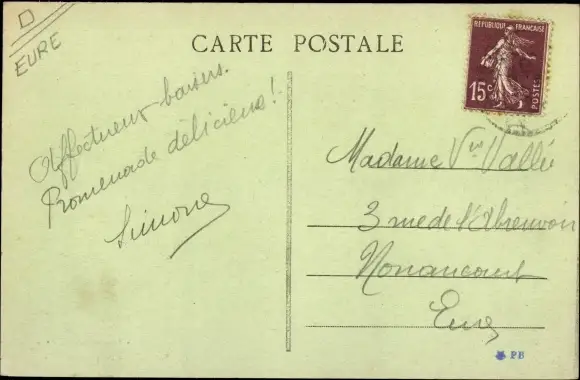 EURE
CARTE POSTALE
REPUBLIQUE FRANÇAISE
15c
POSTES
Affectueux baisers.
Promenade délicieuse!
Simone
Madame Vve Vallée
3 rue de l'Abreuvoir
Nonancourt
Eure
PB